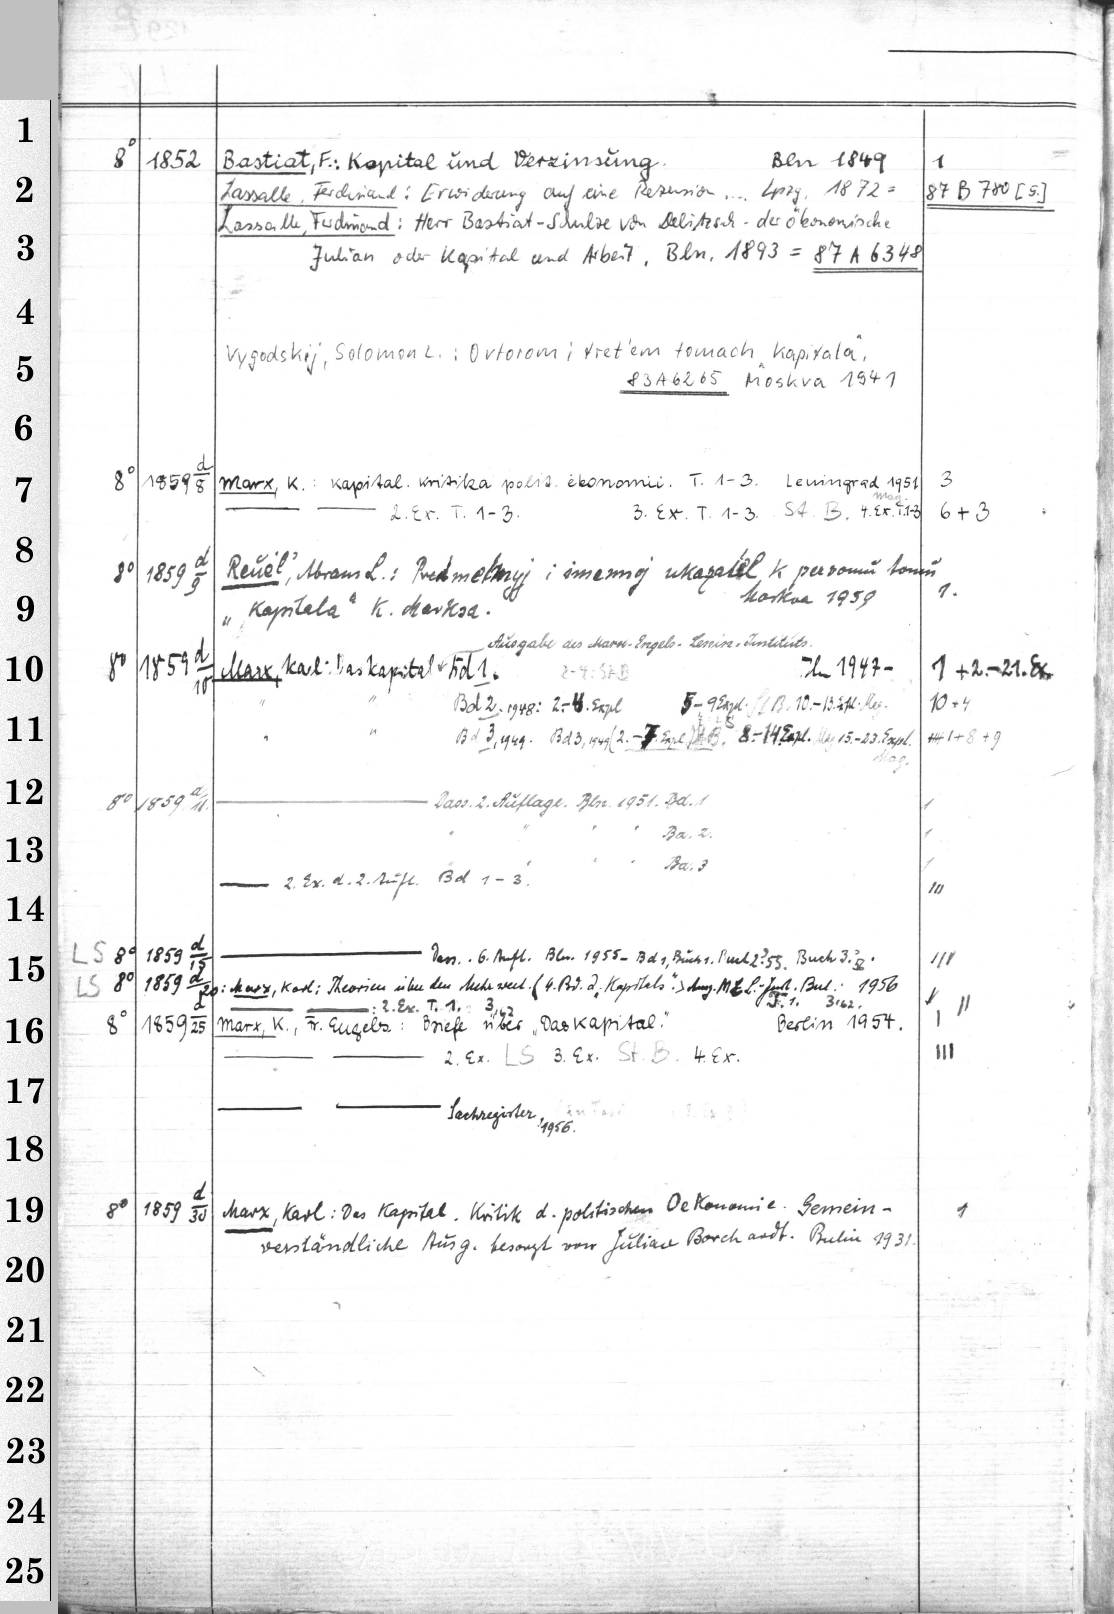 1
8° 1852 Bastiat, F.: Kapital und Verzinsung. Bln 1849 1
2
Lassalle, Ferdinand: Erwiderung auf eine Rezension ... Lpzg. 1872 = 87 B 780 [5.]
Lassalle, Ferdinand: Herr Bastiat-Schulze von Delitzsch - der ökonomische
3
Julian oder Kapital und Arbeit. Bln. 1893 = 87 A 6348
4
Vygodskij, Solomon L.: O vtorom i tret'em tomach „Kapitala".
5
83A6265 Moskva 1941
6
7
8° 1859 d/8 Marx, K.: Kapital. Kritika polit. ėkonomii. T. 1-3. Leningrad 1951 3
2. Ex. T. 1-3. 3. Ex. T. 1-3. St. B. 4. Ex. T. 1-3 Mag. 6 + 3
8
8° 1859 d/9 Reuėl', Abram L.: Predmetnyj i imennoj ukazatel' k pervomu tomu
9
„Kapitala" K. Marksa. Moskva 1959 1.
Ausgabe des Marx-Engels-Lenin-Instituts.
10
8° 1859 d/10 Marx, Karl: Das Kapital Bd 1. Bln 1947- 1 + 2.-21. Ex.
" " Bd 2. 1948: 2.-4. Expl 5-9 Expl. St B. 10.-13. Expl. Mag. 10 + 4
11
" " Bd 3, 1949. Bd 3, 1949 (2.-7. Expl.) St B. 8.-14. Expl. 15.-23. Expl. Mag. 1 + 8 + 9
12
8° 1859 d/11 Dass. 2. Auflage. Bln. 1951. Bd. 1 1
" " " " Bd. 2. 1
13
" " Bd. 3 1
2. Ex. d. 2. Aufl. Bd 1-3. III
14
15
LS 8° 1859 d/15 Dass. 6. Aufl. Bln. 1955- Bd 1, Buch 1. Buch 2. 55. Buch 3. III
LS 8° 1859 d/20 Marx, Karl: Theorien über den Mehrwert. (4. Bd. d. „Kapitals".) Hrsg. M E L - Inst. Berl. 1956
2. Ex. T. 1. 3, 62 T. 1. 3, 62. II
16
8° 1859 d/25 Marx, K., Fr. Engels: Briefe über „Das Kapital." Berlin 1954. I
2. Ex. LS 3. Ex. St. B. 4. Ex. III
17
Sachregister, 1956.
18
19
8° 1859 d/30 Marx, Karl: Das Kapital. Kritik d. politischen Oekonomie. Gemein- 1
verständliche Ausg. besorgt von Julian Borchardt. Berlin 1931.
20
21
22
23
24
25